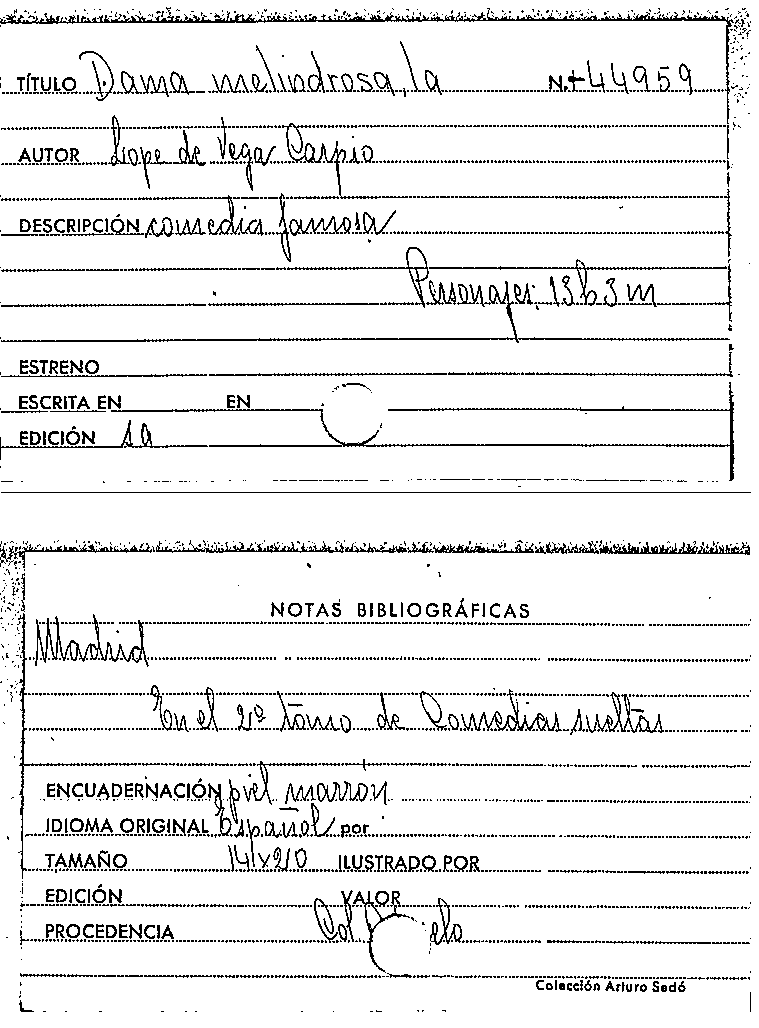 TÍTULO Dama melindrosa, la N.+44959
AUTOR Lope de Vega Carpio
DESCRIPCIÓN comedia famosa
Personajes: 13 h 3 m
ESTRENO
ESCRITA EN EN
EDICIÓN 1a
NOTAS BIBLIOGRÁFICAS
Madrid
En el 2º tomo de Comedias sueltas
ENCUADERNACIÓN piel marrón
IDIOMA ORIGINAL Español por
TAMAÑO 14'x210 ILUSTRADO POR
EDICIÓN VALOR
PROCEDENCIA Col
Colección Arturo Sedó